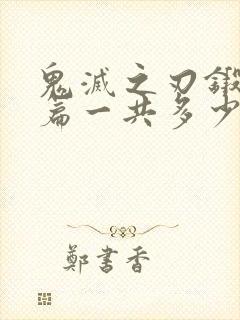 鬼滅之刃鍛
篇一共多少
鄭書香